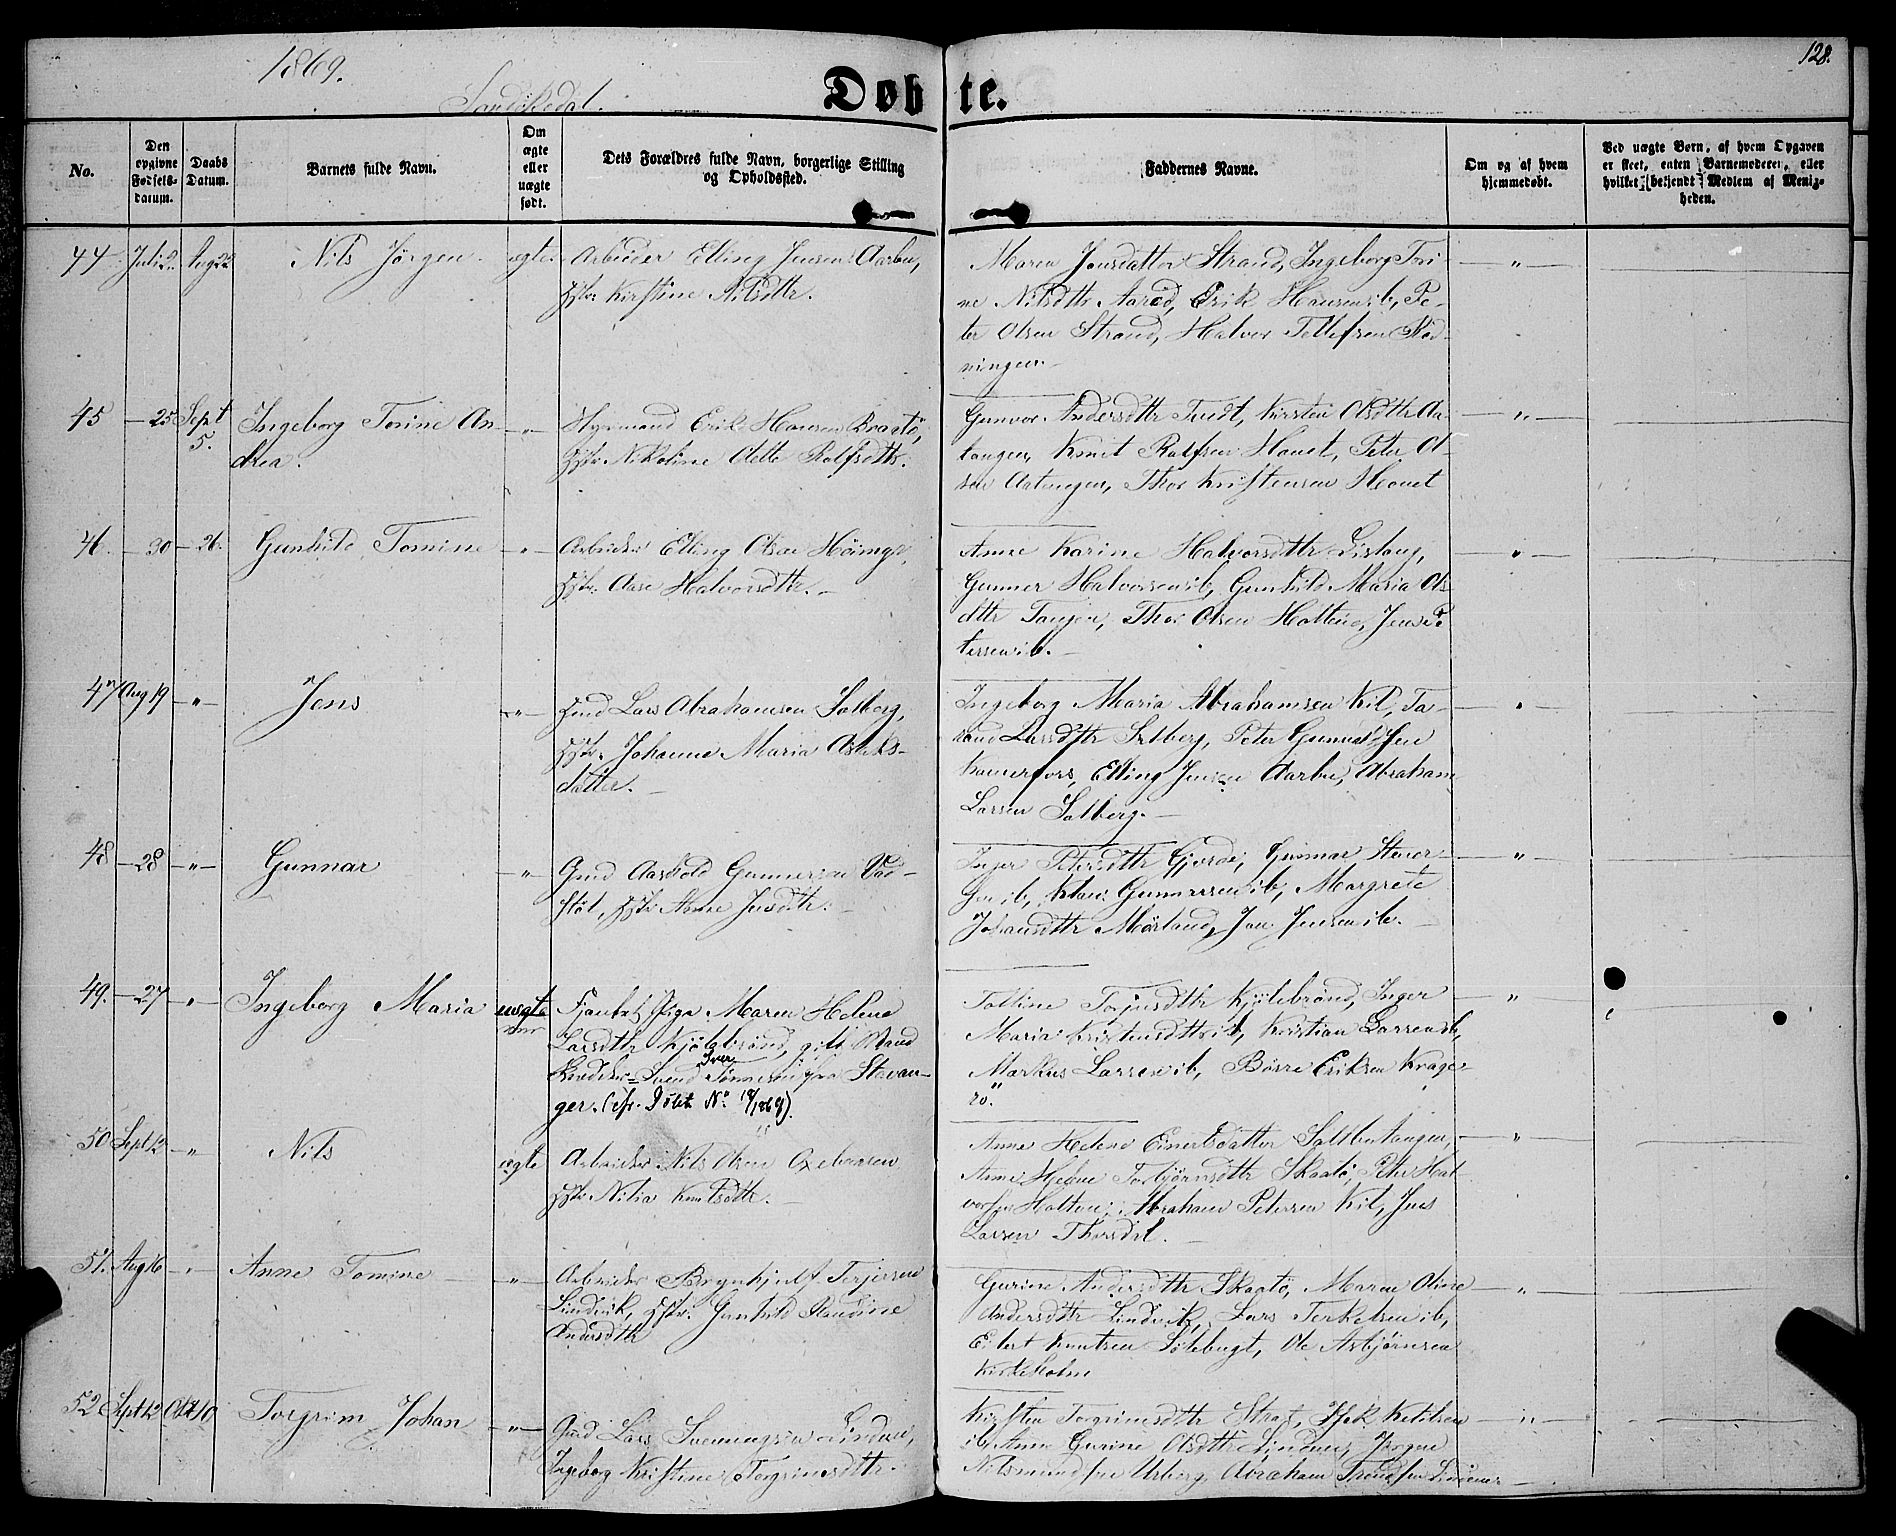 1869.
128.
Sandøkedal.
Døbte.
No.
Den opgivne Fødsels-datum.
Daabs Datum.
Barnets fulde Navn.
Om ægte eller uægte født.
Dets Forældres fulde Navn, borgerlige Stilling og Opholdssted.
Faddernes Navne.
Om og af hvem hjemmedøbt.
Ved uægte Børn, af hvem Opgaven er skeet, enten Barnemoderen, eller hvilket bekjendt Medlem af Menigheden.
44. Juli 2. Aug 22 Nils Jørgen. ægte.
Arbeider Elling Jensen Aarbu,
Hstr. Kirstine Nilsdtr.
Maren Jonsdatter Strand, Ingeborg Tori-
ne Nilsdtr Aarød, Erik Hansen ib, Pe-
ter Olsen Strand, Halvor Tellefsen Rød-
ningen.
45 — 25 Sept 5. Ingeborg Torine An-
drea. — " —
Styrmand Erik Hansen Kragtø,
Hstr. Nikoline Olette Rolfsdtr.
Gunvor Andersdtr Tvedt, Kirsten Olsdtr Aa-
tangen, Knut Rolfsen Hovet, Peter Ol-
sen Aatangen, Thor Kristensen Hovet
46. — 30 — 26. Gunhild Tomine — " —
Arbeider Elling Olsen Høimyr,
Hstr. Aase Halvorsdtr. —
Anne Karine Halvorsdtr Lislaug,
Gunner Halvorsen ib, Gunhild Maria Ols
dttr Tangen, Thor Olsen Holtene, Jens Pe
tersen ib. —
47 Aug 19 — " — Jens — " —
Gmd Lars Abrahamsen Solberg,
Hstr. Johanne Maria Aslaks-
datter. —
Ingeborg Maria Abrahamsen Kil, Ta-
rand Larsdtr Solberg, Peter Gunvaldsen
Kammerfos, Elling Jensen Aarbu, Abraham
Larsen Solberg. —
48 — 28 — " — Gunnar — " —
Gmd Aasold Gunnersen Vad-
støl, Hstr Anne Jensdtr. —
Inger Petersdtr Gjerde, Gunnar Stener-
sen ib, Klaus Gunnersen ib, Margrete
Johansdtr Mørland, Jon Jensen ib. —
49. — 27 — " — Ingeborg Maria uægte
Fjantet Pige Maren Helene
Larsdtr Kjølebrønd, gift Mand
Snedker Svend Iver Tønnesen fra Stavan-
ger. (cfr. Døbt No 19/1869).
Tolline Torjusdtr Kjølebrønd, Inger
Maria Kristensdtr ib, Kristian Larsen ib,
Markus Larsen ib, Børre Eriksen Krage-
rø.
50 Sept 12 — " — Nils ægte
Arbeider Nils Olsen Oxebaasen
Hstr Nilia Knutsdtr. —
Anne Helene Einertsdatter Saltbutangen,
Anne Helene Torbjørnsdtr Skaatø, Peter Hal
vorsen Holtene, Abraham Petersen Kil, Jens
Larsen Thorsdal. —
51. Aug 16 — " — Anne Tomine — " —
Arbeider Brynhjulf Terjesen
Lindvik, Hstr. Gunhild Claudine
Andersdtr
Gurine Andersdtr Skaatø, Maren Oline
Andersdtr Lindvik, Lars Terkelsen ib,
Eilert Knutsen Sølebugt, Ole Asbjørnsen
Kirkeholm
52 Sept 12 Okt 10 Torgrim Johan — " —
Gmd Lars Svenningsen Lindem,
Ingeborg Kristine Torgrimsdtr.
Kirsten Torgrimsdtr Strat, Isak Ketilsen
ib, Anne Gurine Olsdtr Lindem, Jørgen
Nilsmundsen Urberg, Abraham Trondsen Lindem